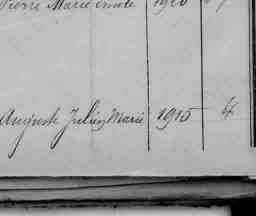 Pierre Marie Emile 1910
Auguste Julien Marie 1915 4